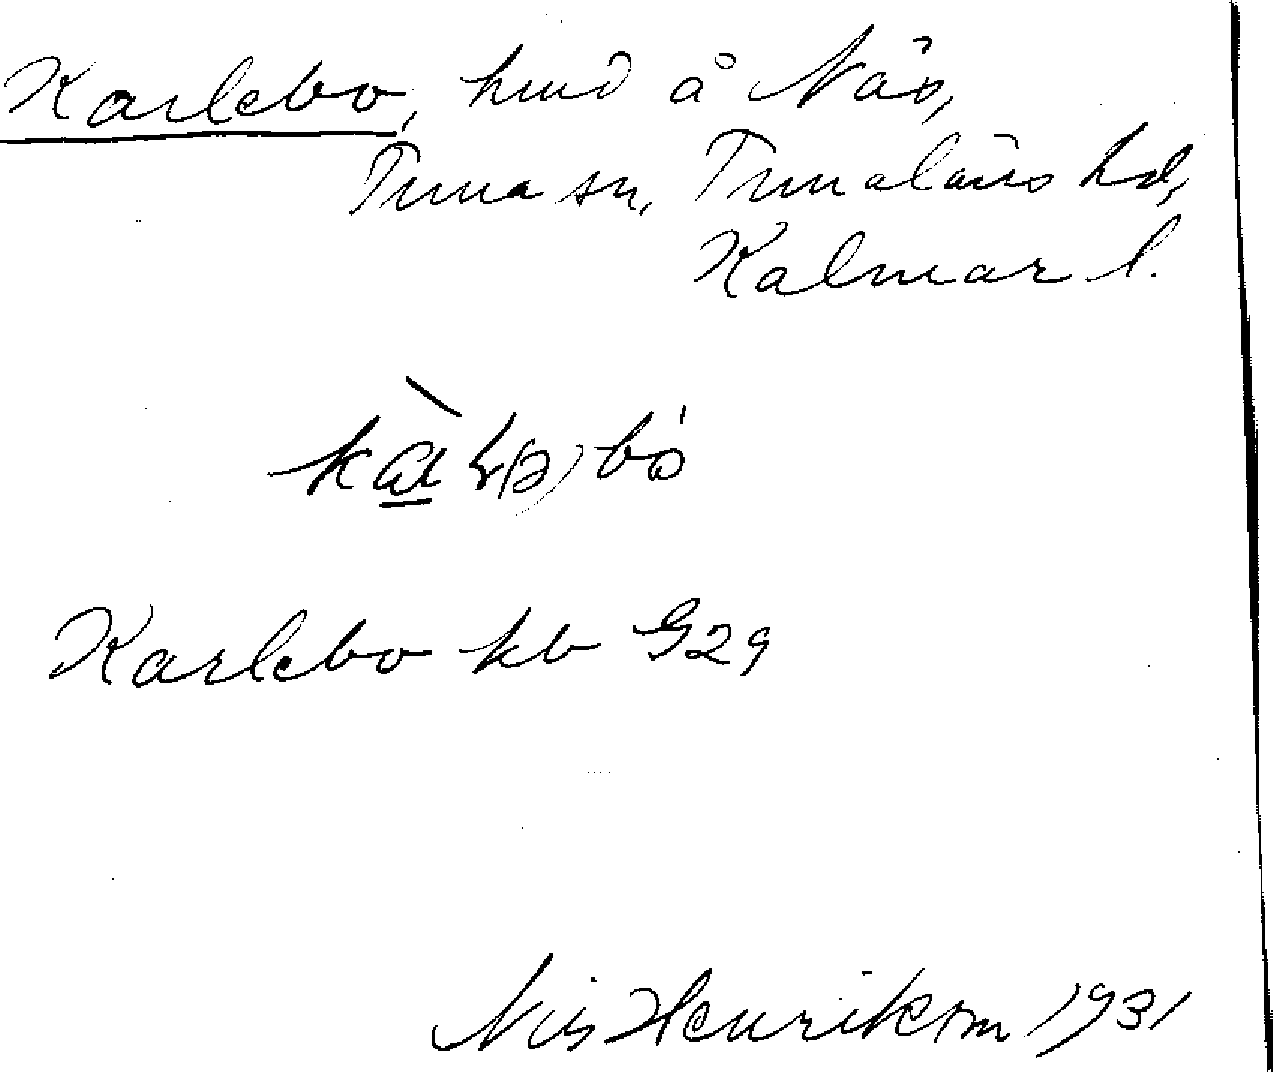 Karlebo, hmd å Näs,
Tuna sn, Tunaläns hd,
Kalmar l.
Karlebo kb G29
Nils Henrikson 1931